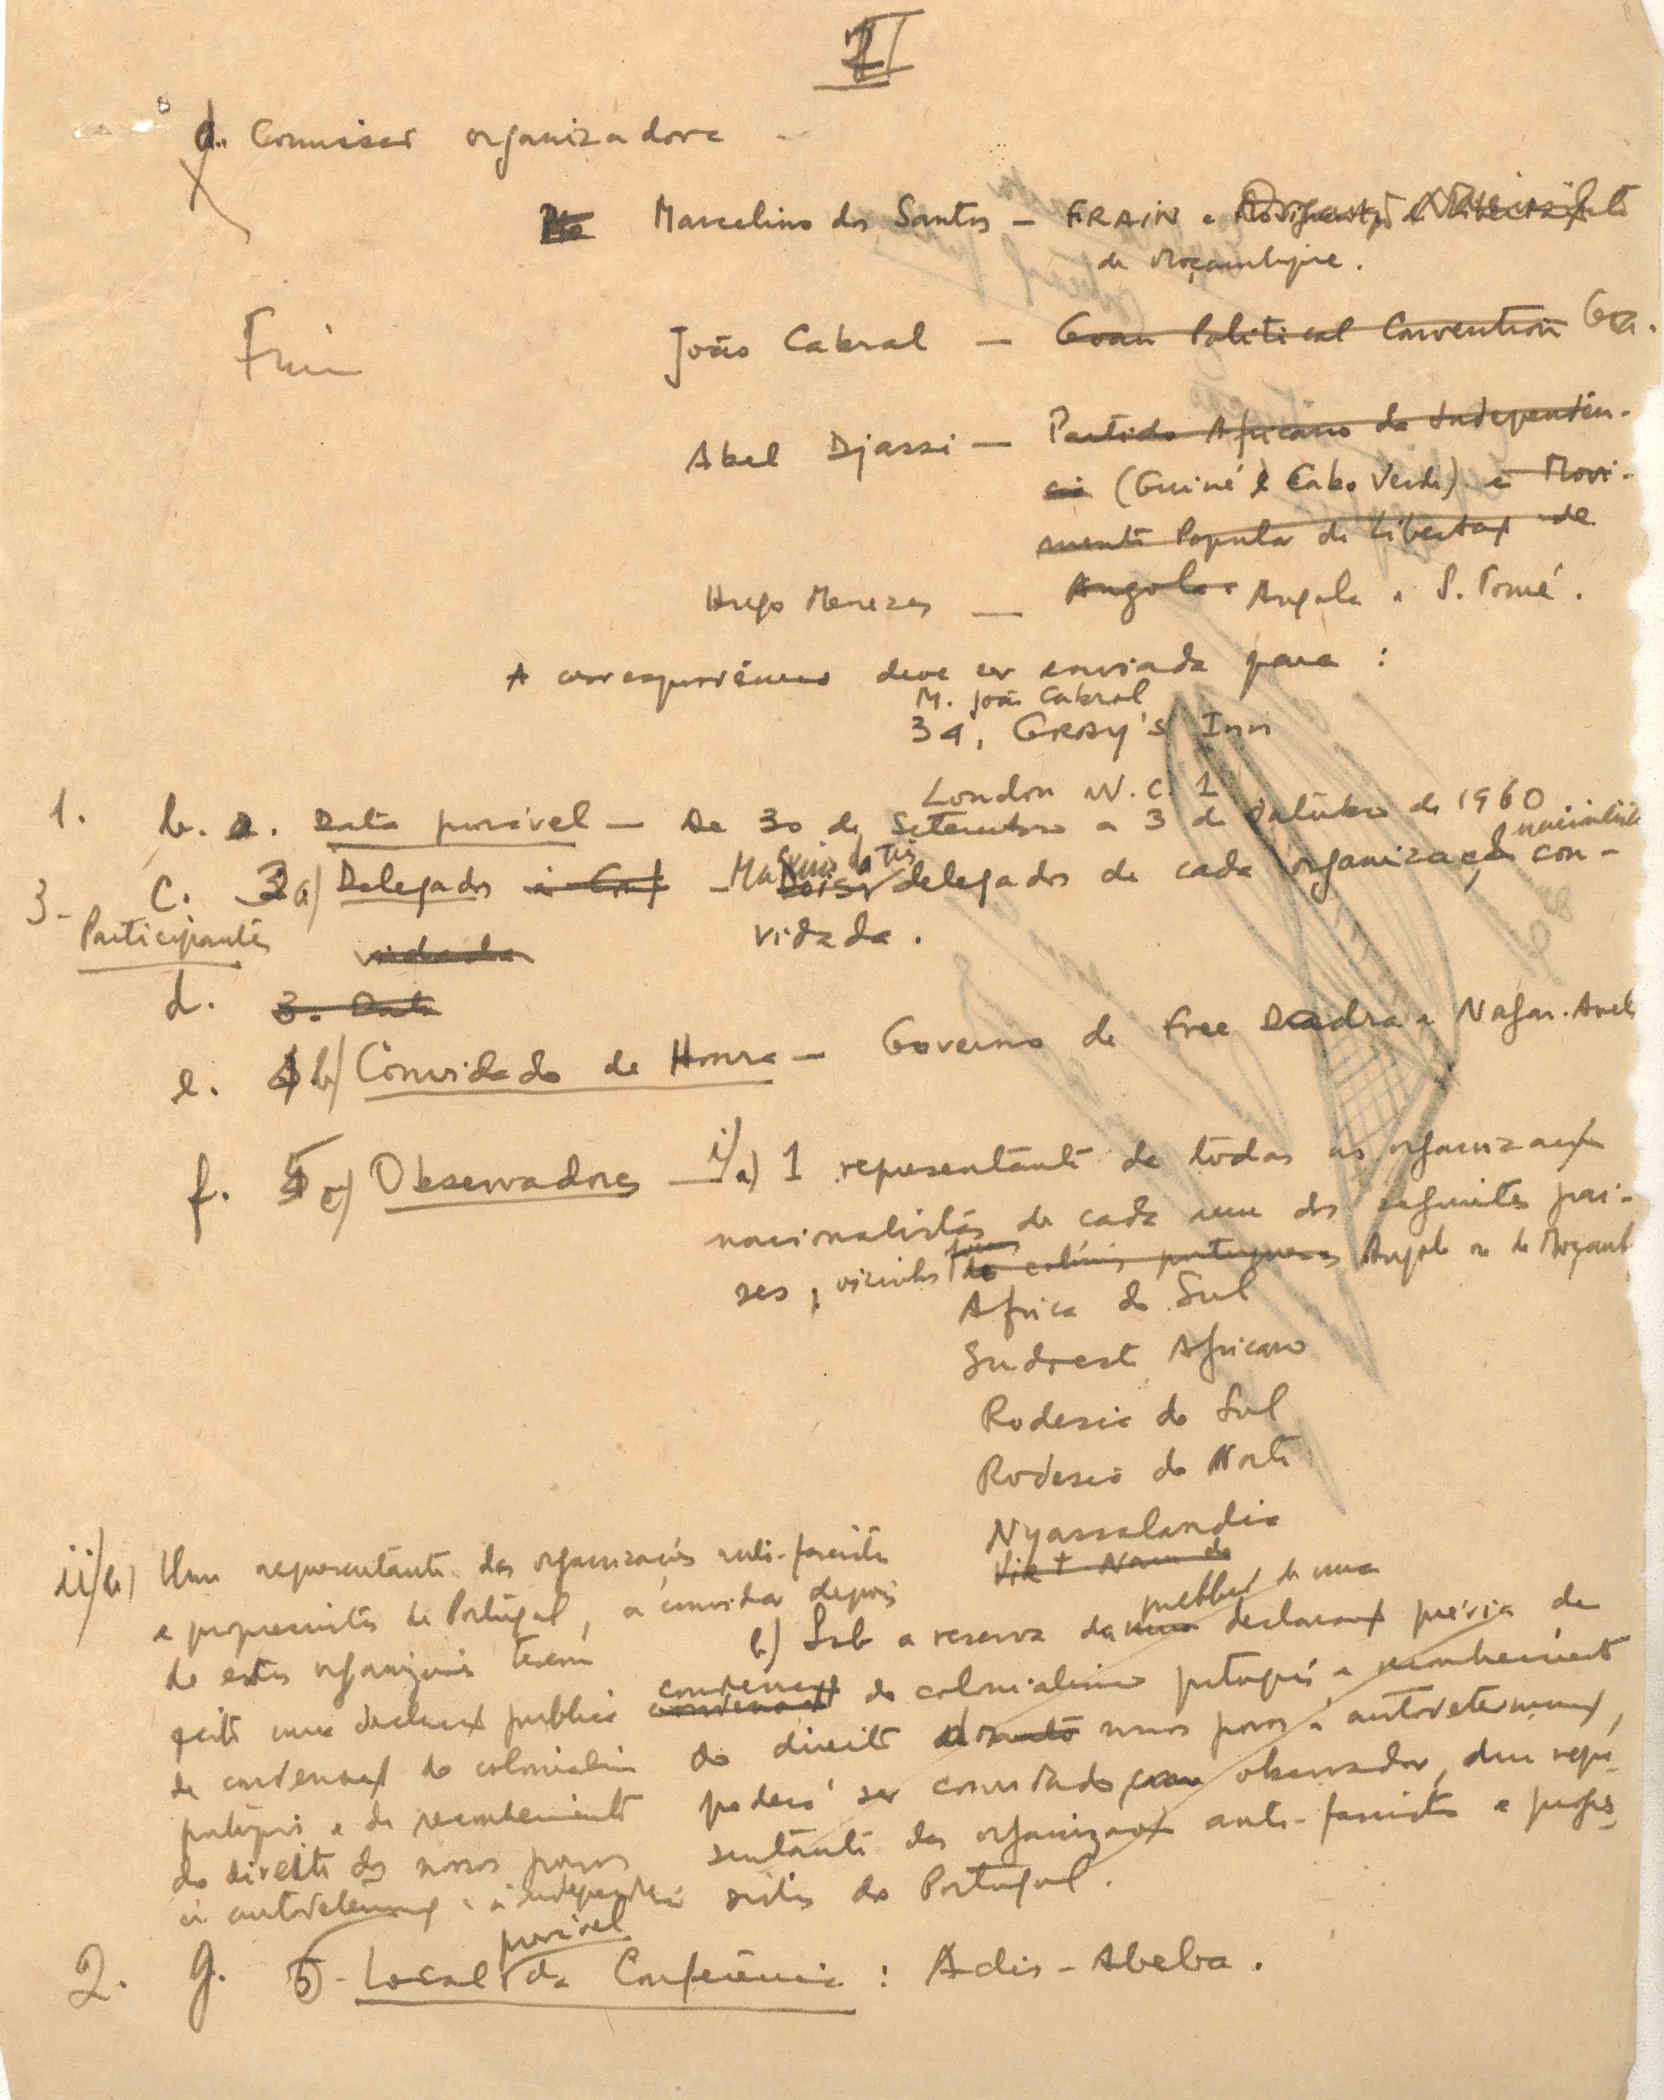 II
a. Comissão organizadora -
Marcelino dos Santos - FRAIN e
de Moçambique.
Frain
João Cabral - Goan Political Convention Goa.
Abel Djassi - Partido Africano da Independên-
cia (Guiné e Cabo Verde) e Movi-
mento Popular de Libertação de
Hugo Menezes - Angola. Angola e S. Tomé.
A correspondência deve ser enviada para:
M. João Cabral
34, GRAY'S Inn
London W.C. 1
1. b. 2. Data possível - De 30 de Setembro a 3 de Outubro de 1960
nacionalista
C. 3 a) Delegados - delegados de cada organização con-
3- Participantes
vidada vidada.
d. 3. Data
e. 4 b) Convidado de Honra - Governo de Free Dadra e Nagar-Aveli
f. 5 c) Observadores - i/a) 1 representante de todas as organizações
nacionalistas de cada um dos seguintes paí-
ses, vizinhos de colónias portuguesas Angola ou de Moçamb
Africa do Sul
Sudoeste Africano
Rodesia do Sul
Rodesia do Norte
Nyassalandia
Viet Nam do
ii/b) Um representante das organizações anti-fascistas
e progressistas de Portugal, a convidar depois
de estas organizações terem
feito uma declaração publica
de condenação do colonialismo
português e de reconhecimento
do direito dos nossos povos
à autodeterminação e à independência
b) Sob a reserva de uma declaração prévia de
condenação do colonialismo português e reconhecimento
do direito nossos povos à autodeterminação,
poderá ser convidado como observador, um repre-
sentante das organizações anti-fascistas e progres-
sistas de Portugal.
possível
2. g. 5- Local da Conferência: Adis-Abeba.